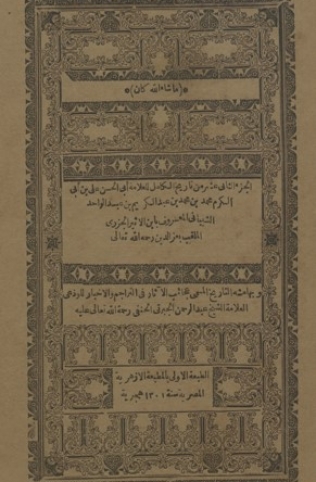 *(ماشاء الله كان)*
الجزء الثانى عشر من تاريخ الكامل للعلامة أبى الحسن على بن أبى
الكرم محمد بن محمد بن عبد الكريم بن عبد الواحد
الشيبانى المعروف بابن الاثير الجزرى
الملقب بعز الدين رحمه الله تعالى
وبهامشه التاريخ المسمى عجائب الآثار فى التراجم والاخبار للامام
العلامة الشيخ عبد الرحمن الجبرتى الحنفى رحمة الله تعالى عليه
الطبعة الاولى بالمطبعة الازهرية
المصرية سنة ١٣٠١ هجرية